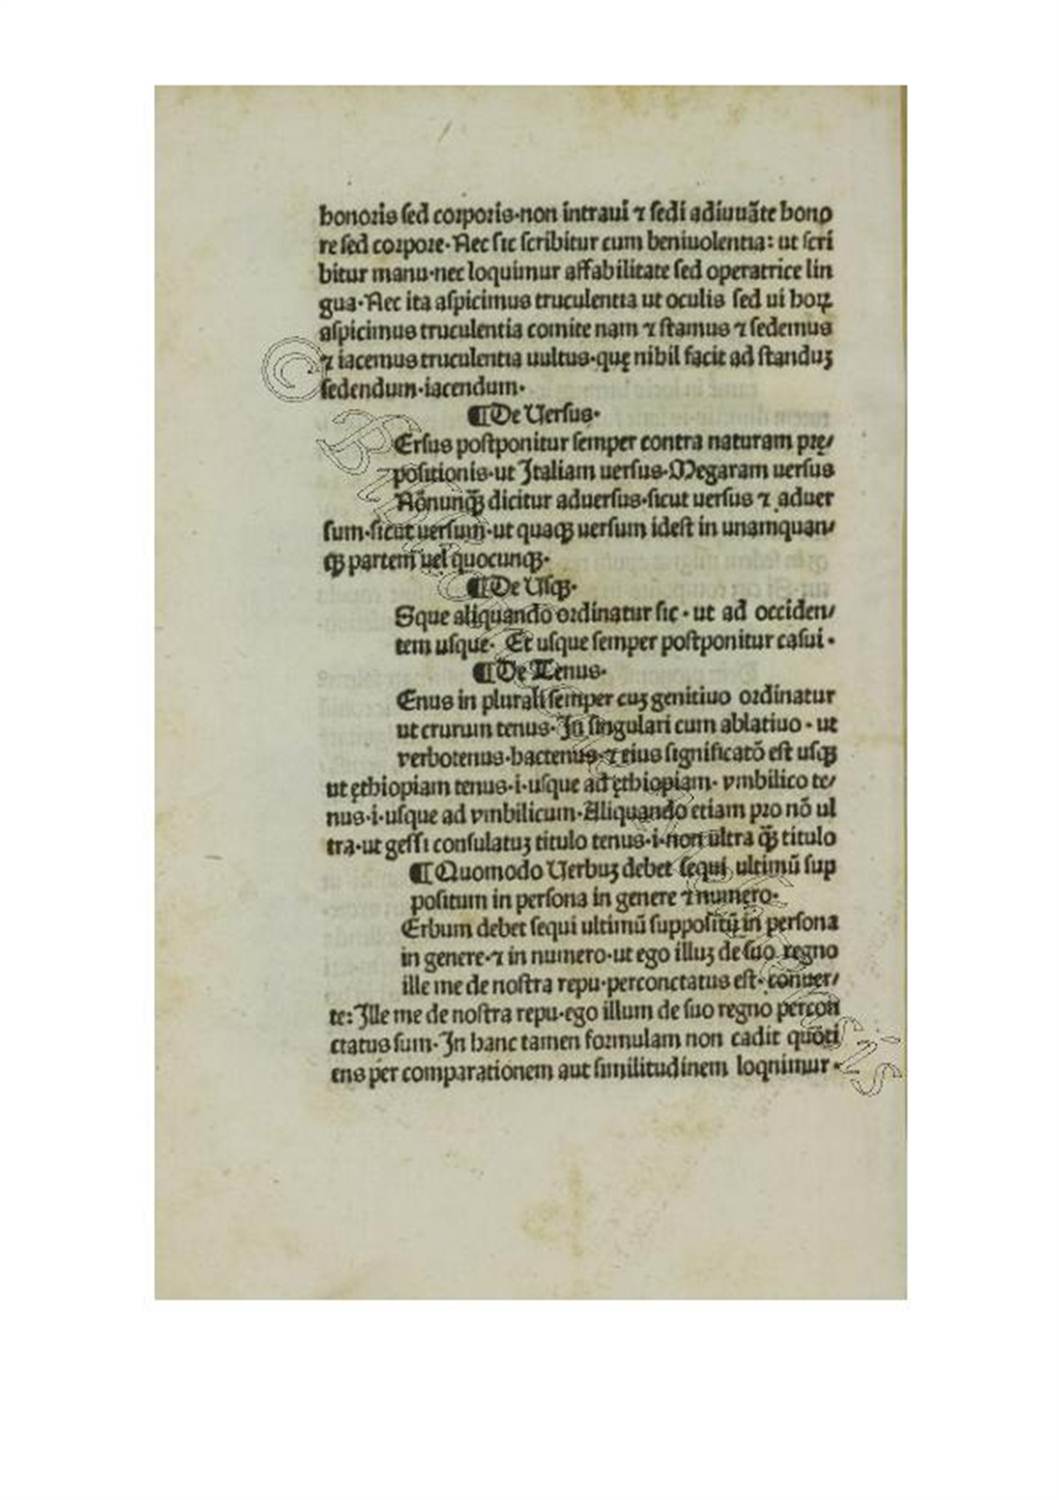 honoris sed corporis·non intraui ⁊ sedi adiuuãte hono
re sed corpore·Nec sic scribitur cum beniuolentia: ut scri
bitur manu·nec loquimur affabilitate sed operatrice lin
gua·Nec ita aspicimus truculentia ut oculis sed ui hoꝝ
aspicimus truculentia comite nam ⁊ stamus ⁊ sedemus
⁊ iacemus truculentia uultus·quę nihil facit ad standuꝫ
sedendum·iacendum·
¶De Uersus·
Ersus postponitur semper contra naturam prę/
positionis·ut Italiam uersus·Megaram uersus
Nõnunqȝ̃ dicitur aduersus·sicut uersus ⁊ aduer
sum·sicut uersum·ut quaqȝ uersum idest in unamquan/
qȝ partem uel quocunqȝ·
¶De Usqȝ·
Sque aliquando ordinatur sic·ut ad occiden/
tem usque· Et usque semper postponitur casui·
¶De Tenus·
Enus in plurali semper cuꝫ genitiuo ordinatur
ut crurum tenus·In singulari cum ablatiuo·ut
verbotenus·hactenus·⁊ eius significatõ est usqȝ
ut ęthiopiam tenus·i·usque ad ęthiopiam· vmbilico te/
nus·i·usque ad vmbilicum·Aliquando etiam pro nõ ul
tra·ut gessi consulatuꝫ titulo tenus·i·non ultra qȝ̃ titulo
¶Quomodo Uerbuꝫ debet sequi ultimũ sup
positum in persona in genere ⁊ numero·
Erbum debet sequi ultimũ suppositũ in persona
in genere·⁊ in numero·ut ego illuꝫ de suo regno
ille me de nostra repu·perconctatus est·conuer/
te: Ille me de nostra repu·ego illum de suo regno percon
ctatus sum·In hanc tamen formulam non cadit quõti
ens per comparationem aut similitudinem loqnimur·
© Biblioteca